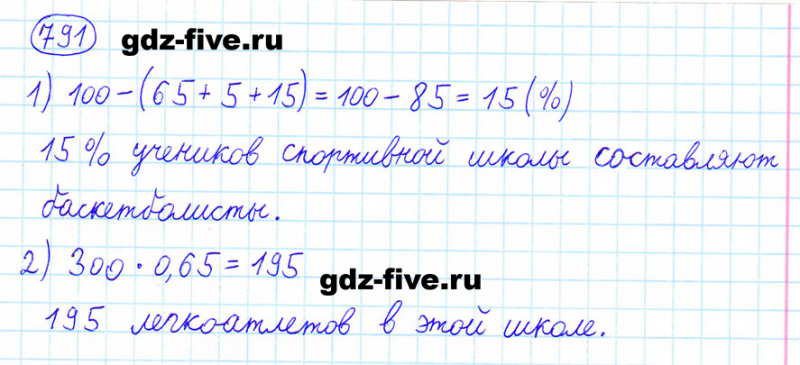 791 gdz-five.ru
1) 100 - (65 + 5 + 15) = 100 - 85 = 15 (%)
15% учеников спортивной школы составляют
баскетболисты.
2) 300 · 0,65 = 195
gdz-five.ru
195 легкоатлетов в этой школе.